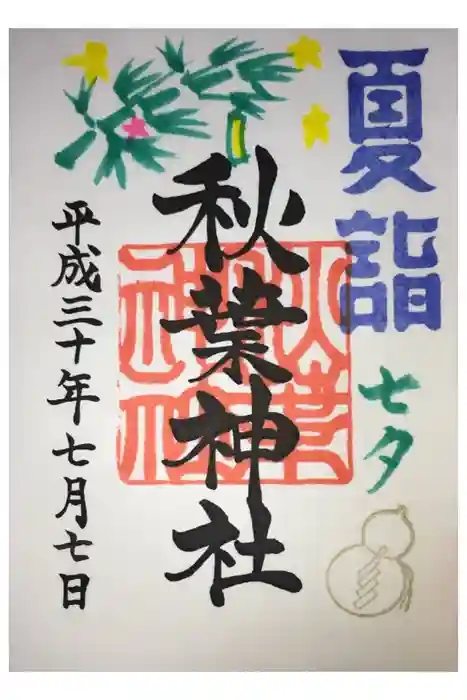 夏詣
七夕
秋葉神社
平成三十年七月七日